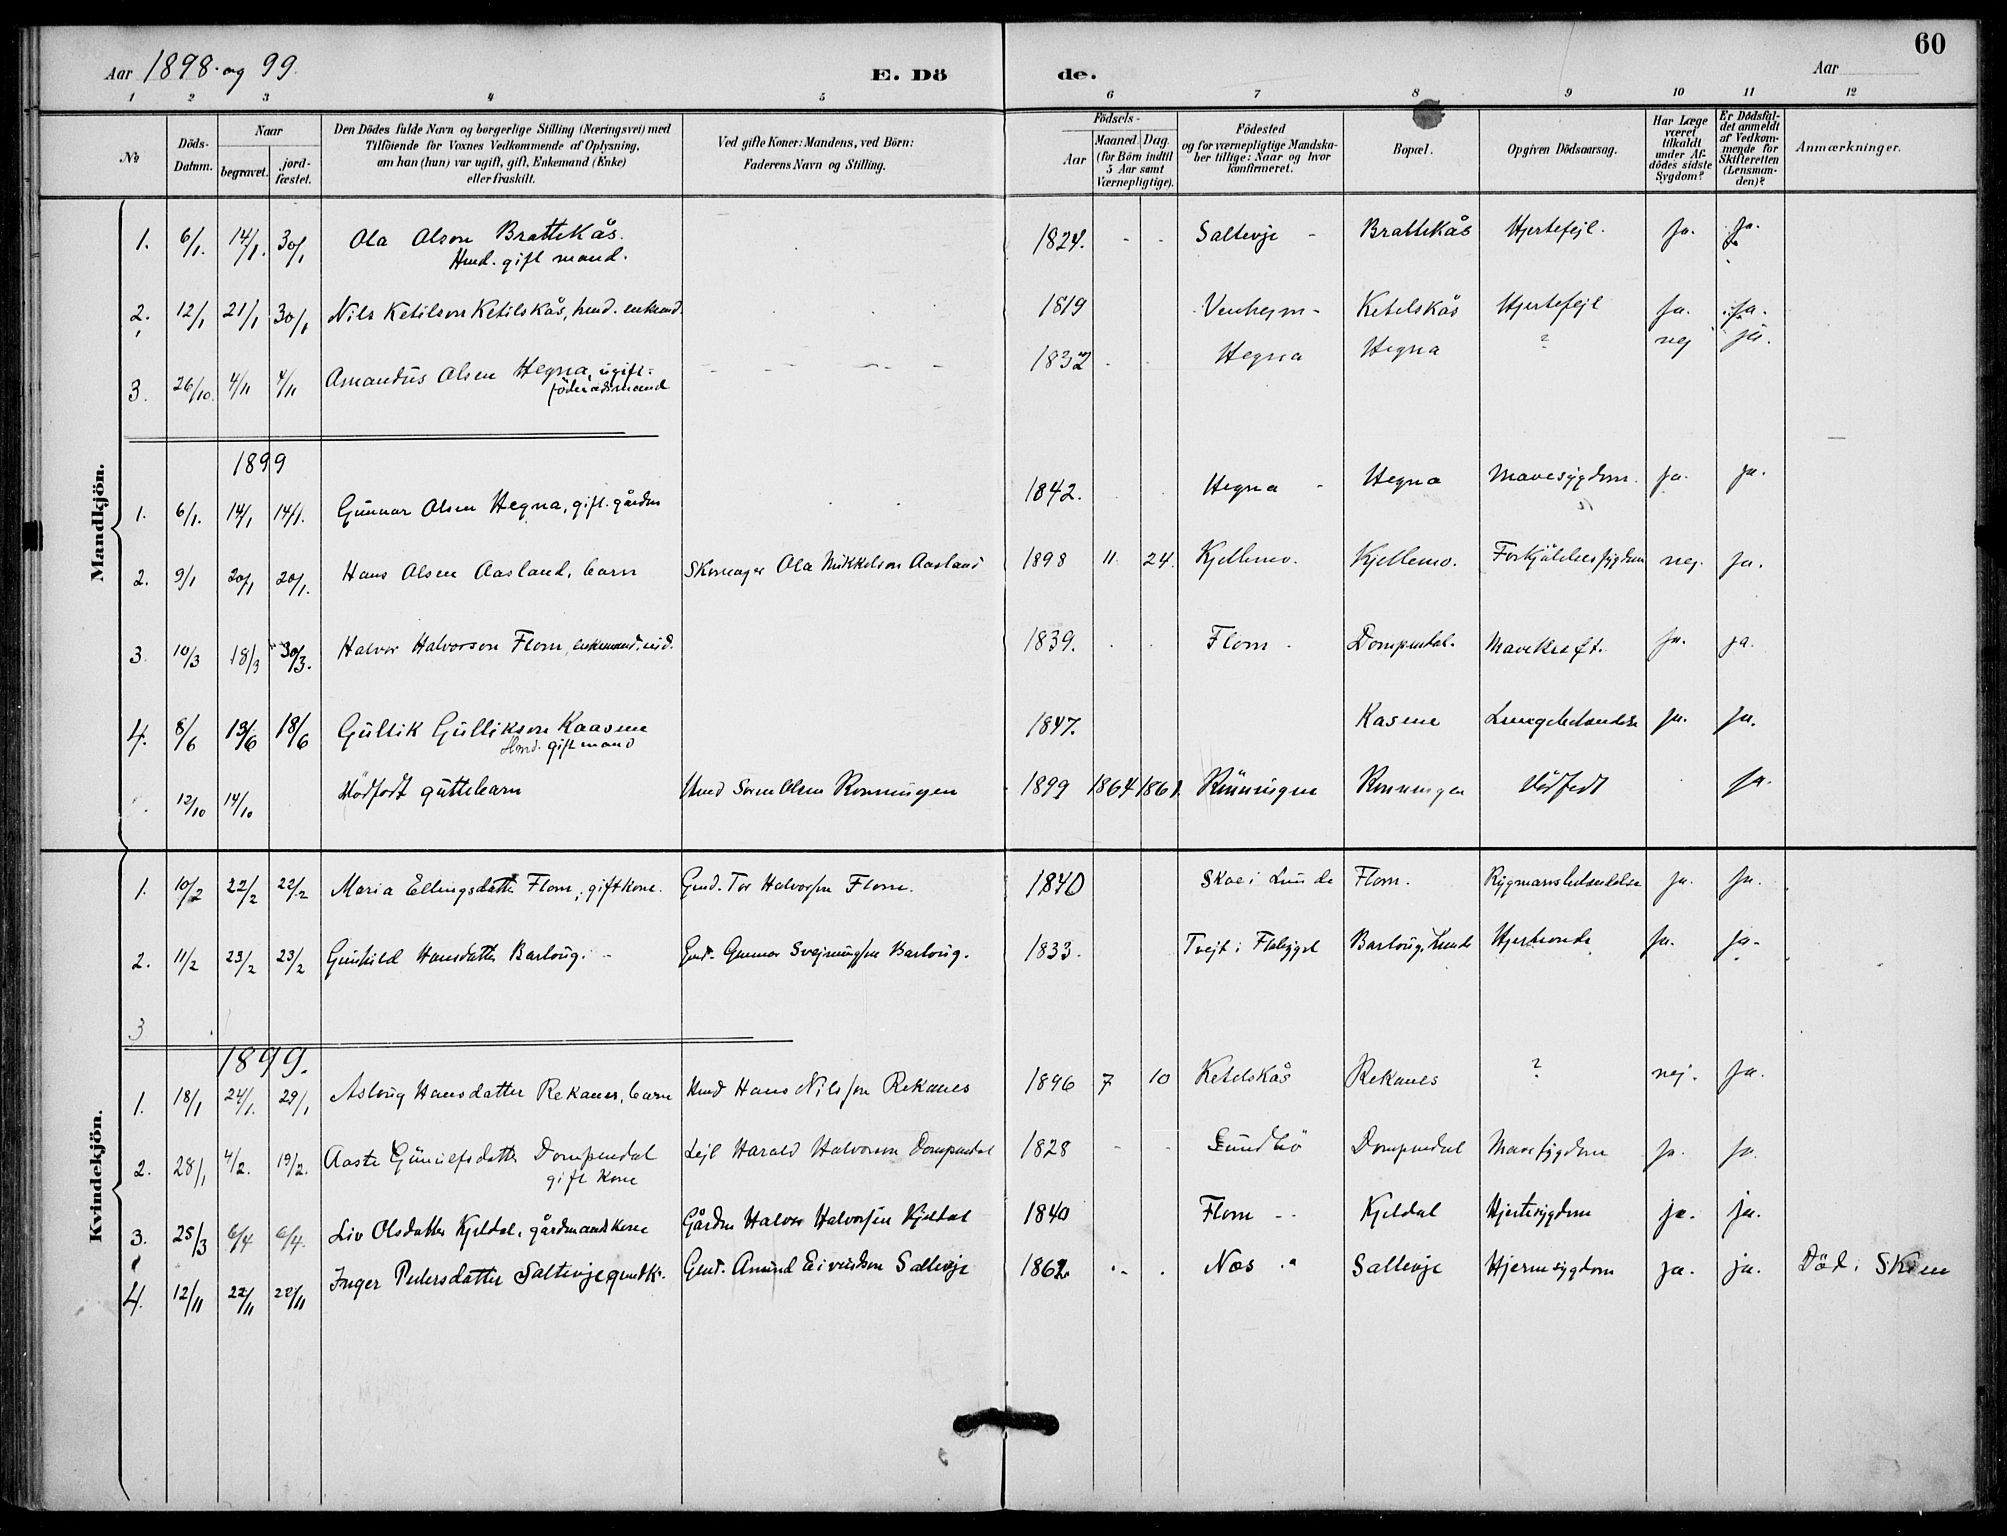 60
Aar 1898. og 99. E. Dö de. Aar
1 2 3 4 5 6 7 8 9 10 11 12
No
Döds-Datum.
Naar
begravet.
jord-fæstet.
Den Dödes fulde Navn og borgerlige Stilling (Næringsvei) med
Tilföiende for Voxnes Vedkommende af Oplysning,
om han (hun) var ugift, gift, Enkemand (Enke)
eller fraskilt.
Ved gifte Koner: Mandens, ved Börn:
Faderens Navn og Stilling.
Födsels-
Aar
Maaned. Dag.
(for Börn indtil
5 Aar samt
Værnepligtige).
Födested
og for værnepligtige Mandska-
ber tillige: Naar og hvor
konfirmeret.
Bopæl.
Opgiven Dödsaarsag.
Har Læge
været
tilkaldt
under Af-
dödes sidste
Sygdom?
Er Dödsfal-
det anmeldt
af Vedkom-
mende for
Skifteretten
(Lensman-
den)?
Anmærkninger.
Mandkjön.
1. 6/1. 14/1. 30/1 Ola Olson Brattekås. 1824. - - Saltevje - Brattekås Hjertefejl. ja. ja.
Hmd. gift mand.
2. 12/1 21/1 30/1 Nils Ketilson Ketilskås, hmd. enkemd. 1819 Venhejm - Ketelskås Hjertefejl ja. ja.
3. 26/10. 4/11 4/11 Amandus Olsen Hegna, ugift - 1832 Hegna Hegna ? nej ja.
föderådsmand
1899
1. 6/1. 14/1 14/1. Gunnar Olsen Hegna, gift. gårdm 1842. Hegna - Hegna Mavesygdom. ja. ja.
2. 9/1 20/1 20/1. Hans Olsen Aasland, barn Skomager Ola Mikkelson Aasland 1898 11. 24. Kjellemo. Kjellemo. Forkjölelsessygdom nej. ja.
3. 10/3 18/3 30/3. Halvor Halvorson Flom, enkemand, 1839. Flom - Dompendal. Mavekræft. ja. ja.
4. 8/6 19/6 18/6 Gullik Gullikson Kaasene 1847. Kasene Lungebetændelse ja. ja.
Hmd. gift mand
12/10 14/10 Dödfödt guttebarn Hmd Soren Olsen Ronningen 1899 1864 1861. Rönningen Ronningen Dödfödt ja.
Kvindekjön.
1. 10/2 22/2 22/2 Maria Ellingsdatter Flom, gift kone. Gmd. Tor Halvorsen Flom. 1840 Skoe i Lunde Flom. Rygmarvsbetændelse ja. ja.
2. 11/2 23/2 23/2 Gunhild Hansdatter Barloug. - Gmd. Gunnar Svejnungsen Barloug. 1833. Tvejt i Flabygd Barloug, Lunde Hjerteonde ja. ja.
3
1899.
1. 18/1 24/1. 29/1 Aslaug Hansdatter Rekanes, barn Hmd Hans Nilssen Rekanes 1896 7 10 Ketelskås Rekanes ? nej. ja.
2. 28/1 4/2. 19/2. Aaste Gunulfsdatter Dompendal Lejl Harald Halvorson Dompendal 1828 - - Sundbö Dompendal Mavesygdom ja. ja.
gift Kone
3. 25/3 6/4 6/4. Liv Olsdatter Kjeldal, gårdmandskone Gårdm Halvor Halvorsen Kjeldal 1840 Flom - Kjeldal Hjertesygdom ja. ja.
4. 12/11 22/11 22/11 Inger Pedersdatter Saltevje gmdk. Gmd. Amund Eivindson Saltevje 1862. Næs Saltevje Hjernesygdom ja. ja. Död i Skien